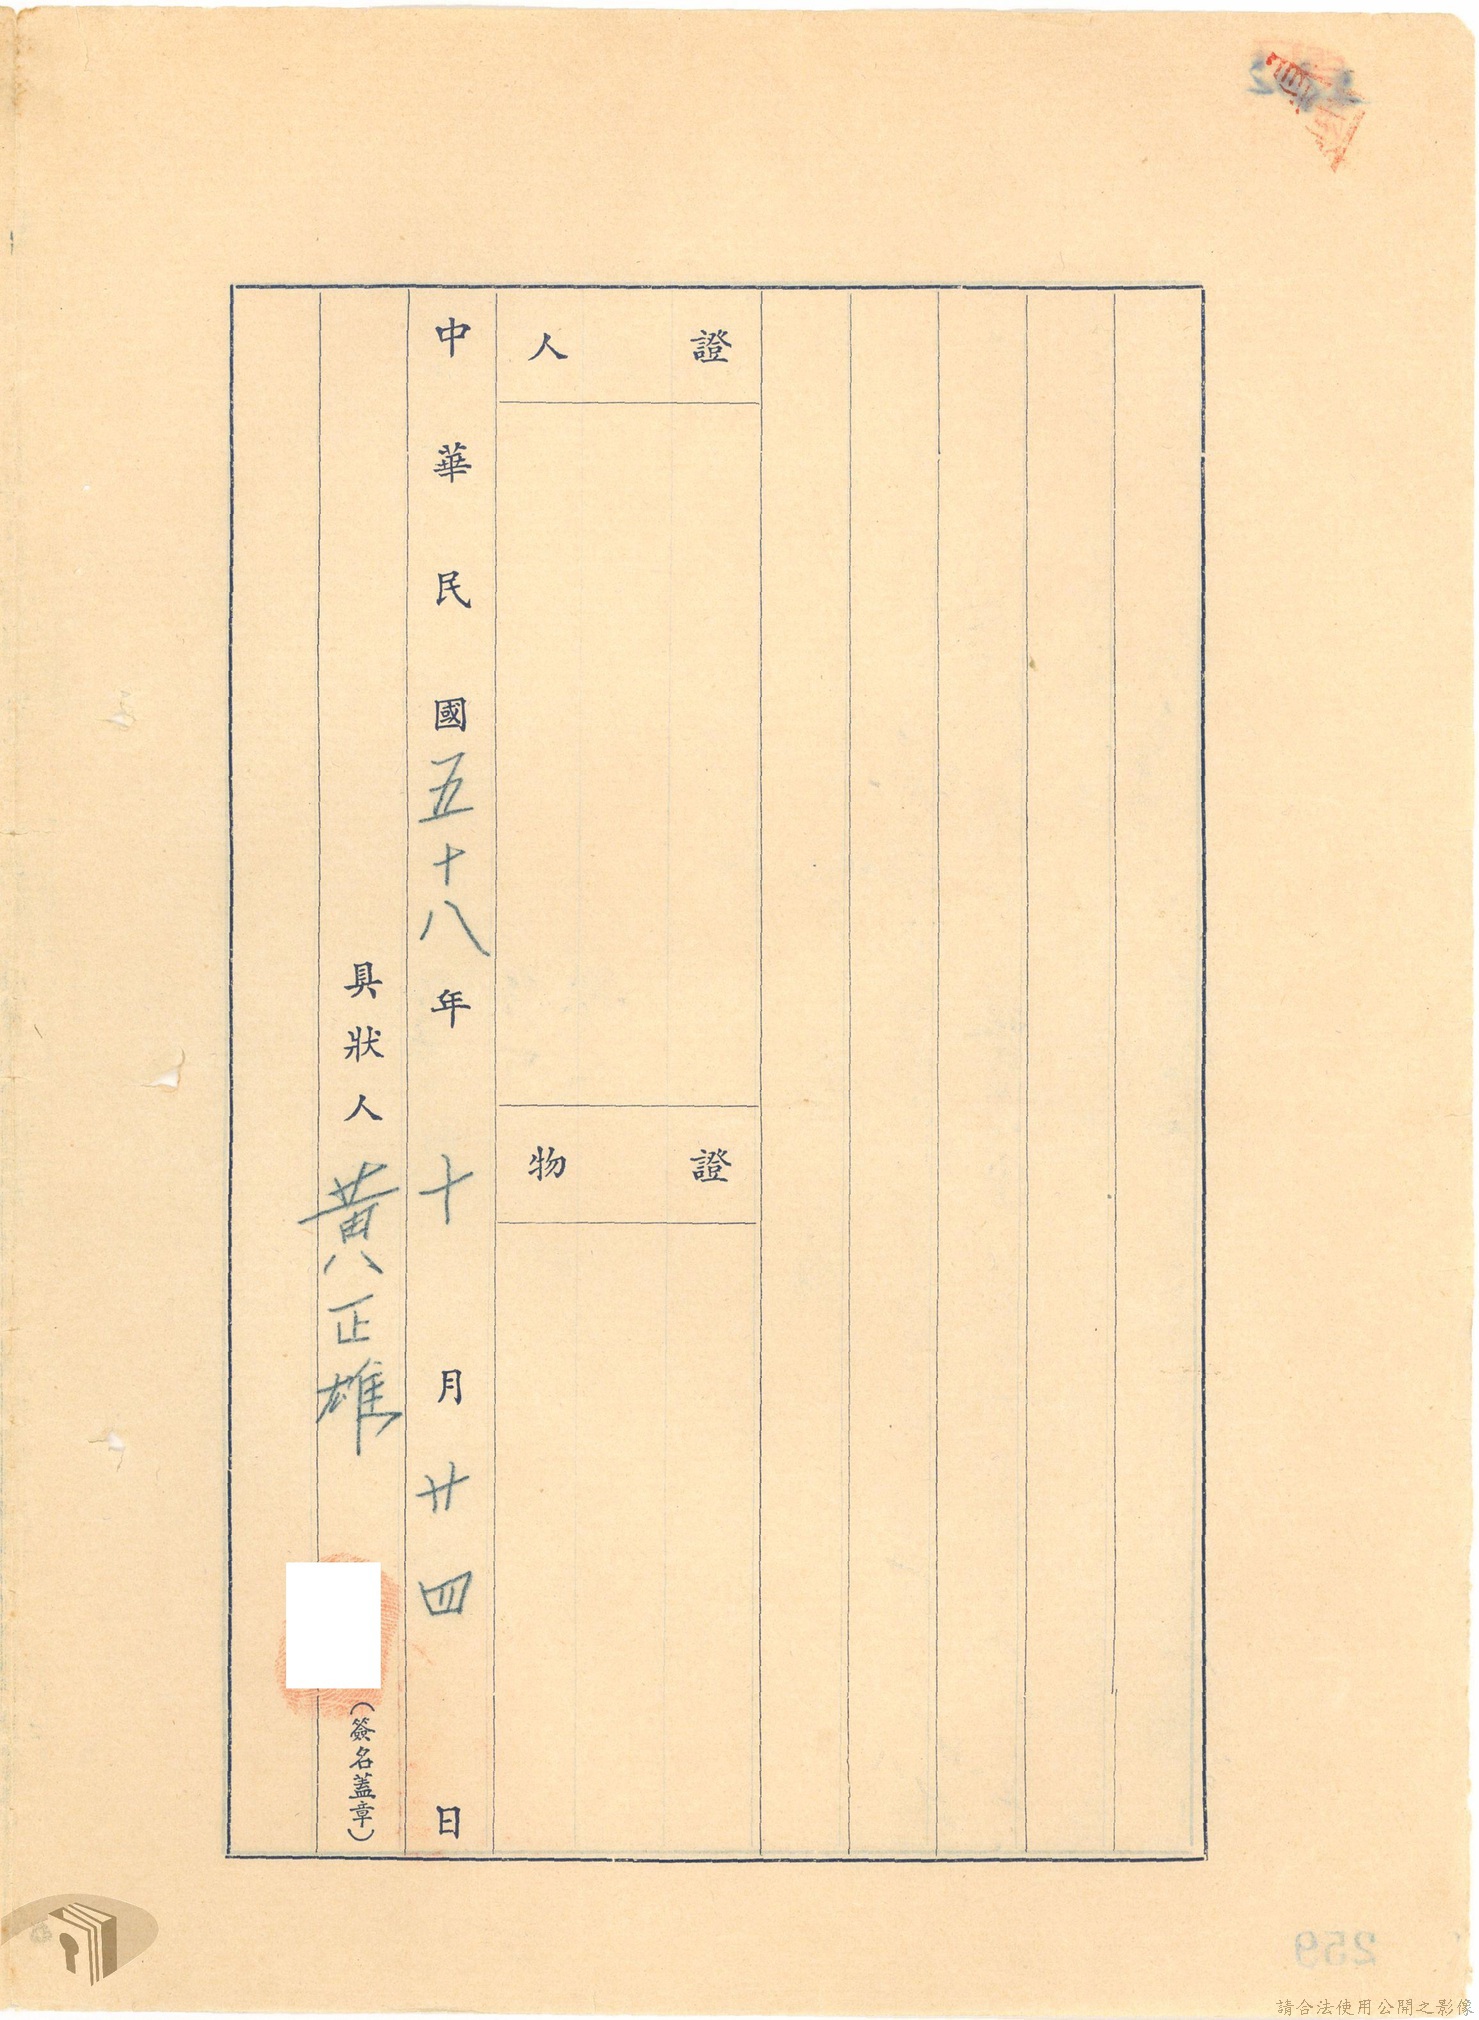 證人
證物
中華民國五十八年十月廿四日
具狀人 黃正雄 (簽名蓋章)
259
請合法使用公開之影像